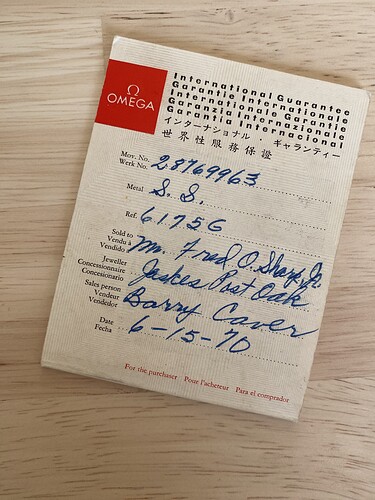 Ω
OMEGA
International Guarantee
Garantie Internationale
Internationale Garantie
Garanzia Internazionale
Garantia Internacional
インターナショナル・ギャランティー
世界性服務保證
Mov. No.
Werk No. 28769963
Metal S. S.
Ref. 6175G
Sold to
Vendu
Vendido Mr. Fred O. Sharp Jr.
Jeweller
Concessionnaire
Concesionario Jaskes Post Oak
Sales person
Vendeur
Vendedor Barry Caver
Date
Fecha 6-15-70
For the purchaser Pour l'acheteur Para el comprador